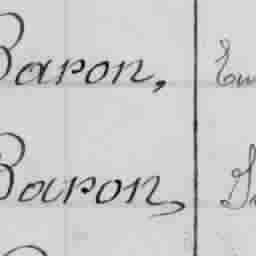 Baron,
Baron,